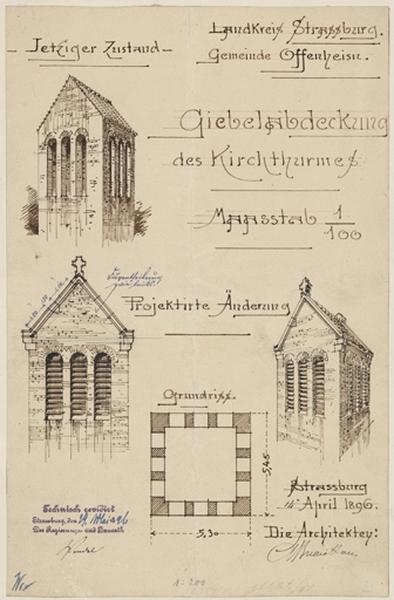 Landkreis Strassburg.
Gemeinde Offenheim.
- Jetziger Zustand -
Giebelabdeckung
des Kirchthurmes
Maasstab 1/100
Projektirte Änderung
Grundriss.
5,45
5,30
Strassburg
14 April 1896.
Die Architekten:
Technisch revidirt
Strassburg, den 19. Mai 96
Der Regierungs und Baurath
1:200